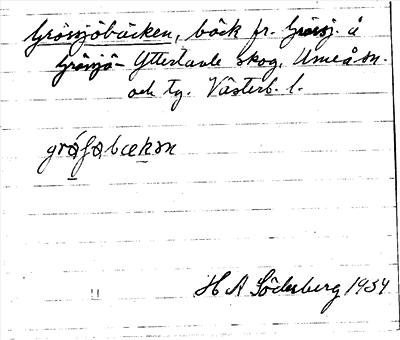 Grössjöbäcken, bäck fr. Grössj. å
Grössjö- Yttertavle skog, Umeå sn.
och tg. Västerb. l.
gröʃøbækən
H A Söderberg 1934